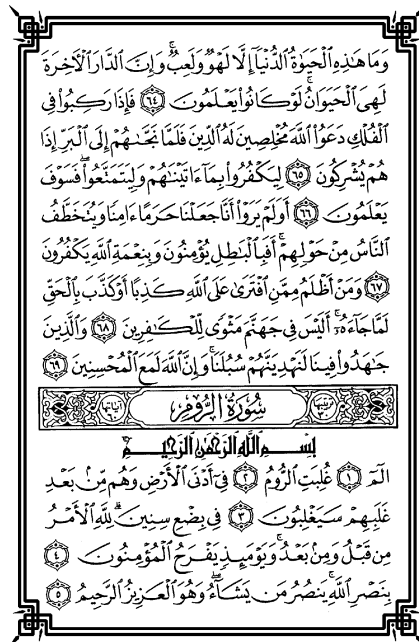 وَمَا هَٰذِهِ الْحَيَوٰةُ الدُّنْيَا إِلَّا لَهْوٌ وَلَعِبٌ ۚ وَإِنَّ الدَّارَ الْآخِرَةَ
لَهِيَ الْحَيَوَانُ ۚ لَوْ كَانُوا يَعْلَمُونَ ٦٤ فَإِذَا رَكِبُوا فِي
الْفُلْكِ دَعَوُا اللَّهَ مُخْلِصِينَ لَهُ الدِّينَ فَلَمَّا نَجَّىٰهُمْ إِلَى الْبَرِّ إِذَا
هُمْ يُشْرِكُونَ ٦٥ لِيَكْفُرُوا بِمَا ءَاتَيْنَٰهُمْ وَلِيَتَمَتَّعُوا ۖ فَسَوْفَ
يَعْلَمُونَ ٦٦ أَوَلَمْ يَرَوْا أَنَّا جَعَلْنَا حَرَمًا ءَامِنًا وَيُتَخَطَّفُ
النَّاسُ مِنْ حَوْلِهِمْ ۚ أَفَبِالْبَٰطِلِ يُؤْمِنُونَ وَبِنِعْمَةِ اللَّهِ يَكْفُرُونَ
٦٧ وَمَنْ أَظْلَمُ مِمَّنِ افْتَرَىٰ عَلَى اللَّهِ كَذِبًا أَوْ كَذَّبَ بِالْحَقِّ
لَمَّا جَاءَهُ ۚ أَلَيْسَ فِي جَهَنَّمَ مَثْوًى لِلْكَٰفِرِينَ ٦٨ وَالَّذِينَ
جَٰهَدُوا فِينَا لَنَهْدِيَنَّهُمْ سُبُلَنَا ۚ وَإِنَّ اللَّهَ لَمَعَ الْمُحْسِنِينَ ٦٩
سُورَةُ الرُّومِ
بِسْمِ اللَّهِ الرَّحْمَٰنِ الرَّحِيمِ
الٓمٓ ١ غُلِبَتِ الرُّومُ ٢ فِي أَدْنَى الْأَرْضِ وَهُم مِّنۢ بَعْدِ
غَلَبِهِمْ سَيَغْلِبُونَ ٣ فِي بِضْعِ سِنِينَ ۗ لِلَّهِ الْأَمْرُ
مِن قَبْلُ وَمِنۢ بَعْدُ ۚ وَيَوْمَئِذٍ يَفْرَحُ الْمُؤْمِنُونَ ٤
بِنَصْرِ اللَّهِ ۚ يَنصُرُ مَن يَشَاءُ ۖ وَهُوَ الْعَزِيزُ الرَّحِيمُ ٥